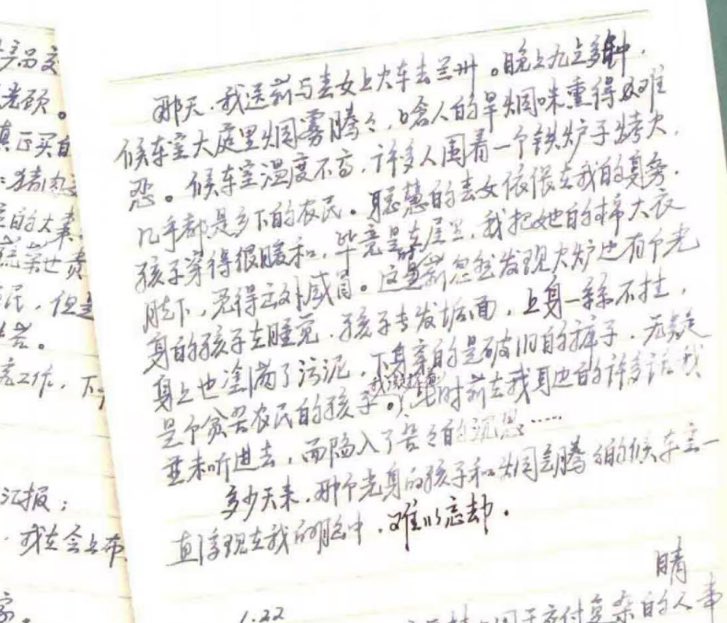 那天，我送莉与春女上火车去兰州。晚上九点多钟，
候车室大庭里烟雾腾々，呛人的旱烟味重得难
忍。候车室温度不高，许多人围着一个铁炉子烤火，
几乎都是乡下的农民。聪慧的春女依偎在我的身旁。
孩子穿得很暖和，毕竟是在屋里，我把她的棉大衣
脱下，免得到外感冒。这时莉忽然发现火炉边有个光
身的孩子在睡觉，孩子专发垢面，上身一丝不挂，
身上也塗满了污泥，下身穿的是破旧的裤子，无疑
是个贫苦农民的孩子。此时莉在我耳边的许多话我
并未听进去，而陷入了苦々的沉思……
多少天来，那个光身的孩子和烟雾腾々的候车室一
直浮现在我的脑中，难以忘却。
晴
1.22
复杂的人事
光颐。
真正买的
猪肉
的大事
但是
工作，下
汇报：
我在会上布
家。